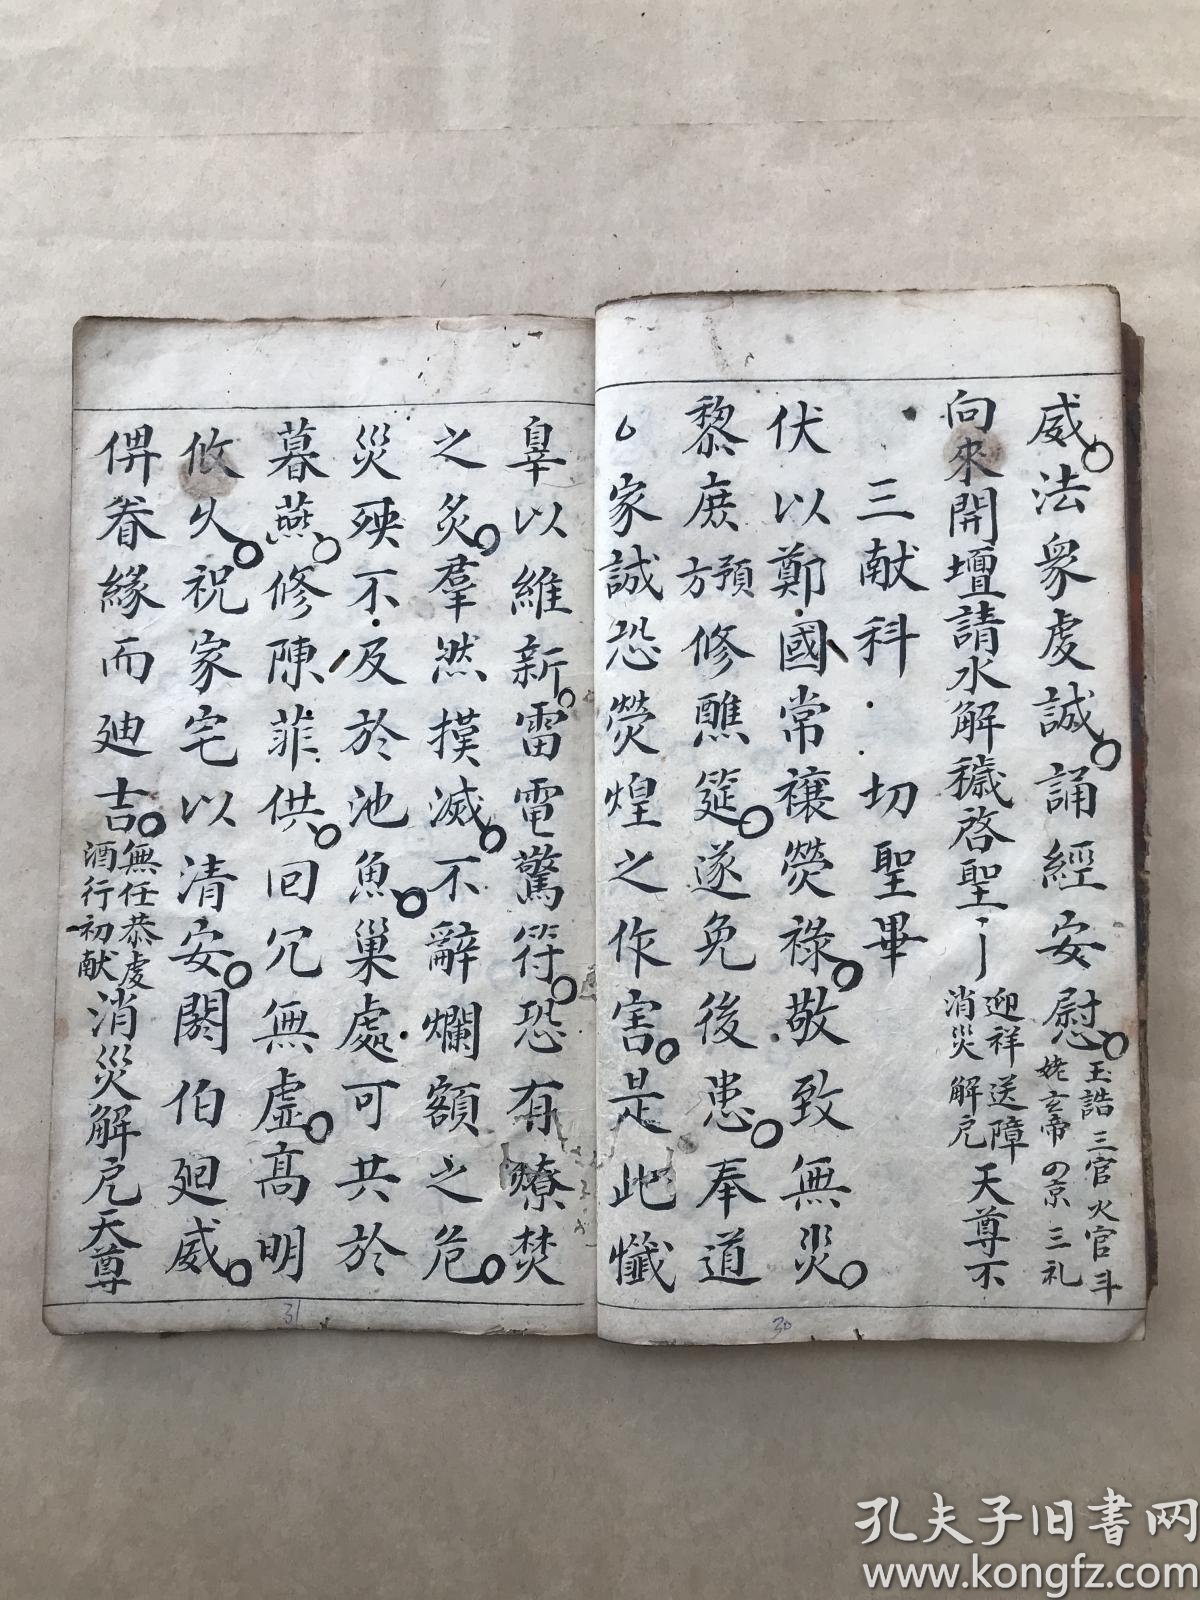 威法衆虔誠誦經安慰玉誥三官火官斗
姥玄帝の京三礼
向來開壇請水解穢啓聖迎祥送障
消災解厄天尊不
三献科 切聖畢
伏以鄭國常禳熒祿敬致無災
黎庶預方修醮筵遂免後患奉道
家誠恐熒煌之作害是此懺
辠以維新雷電驚符恐有燎焚
之炙羣然撲滅不辭爛額之危
災殃不及於池魚巢處可共於
暮燕修陳菲供回冗無虛高明
攸火祝家宅以清安閼伯廻威
俾眷緣而迪吉無任恭虔
酒行初献消災解厄天尊
31
30
孔夫子旧書网
www.kongfz.com